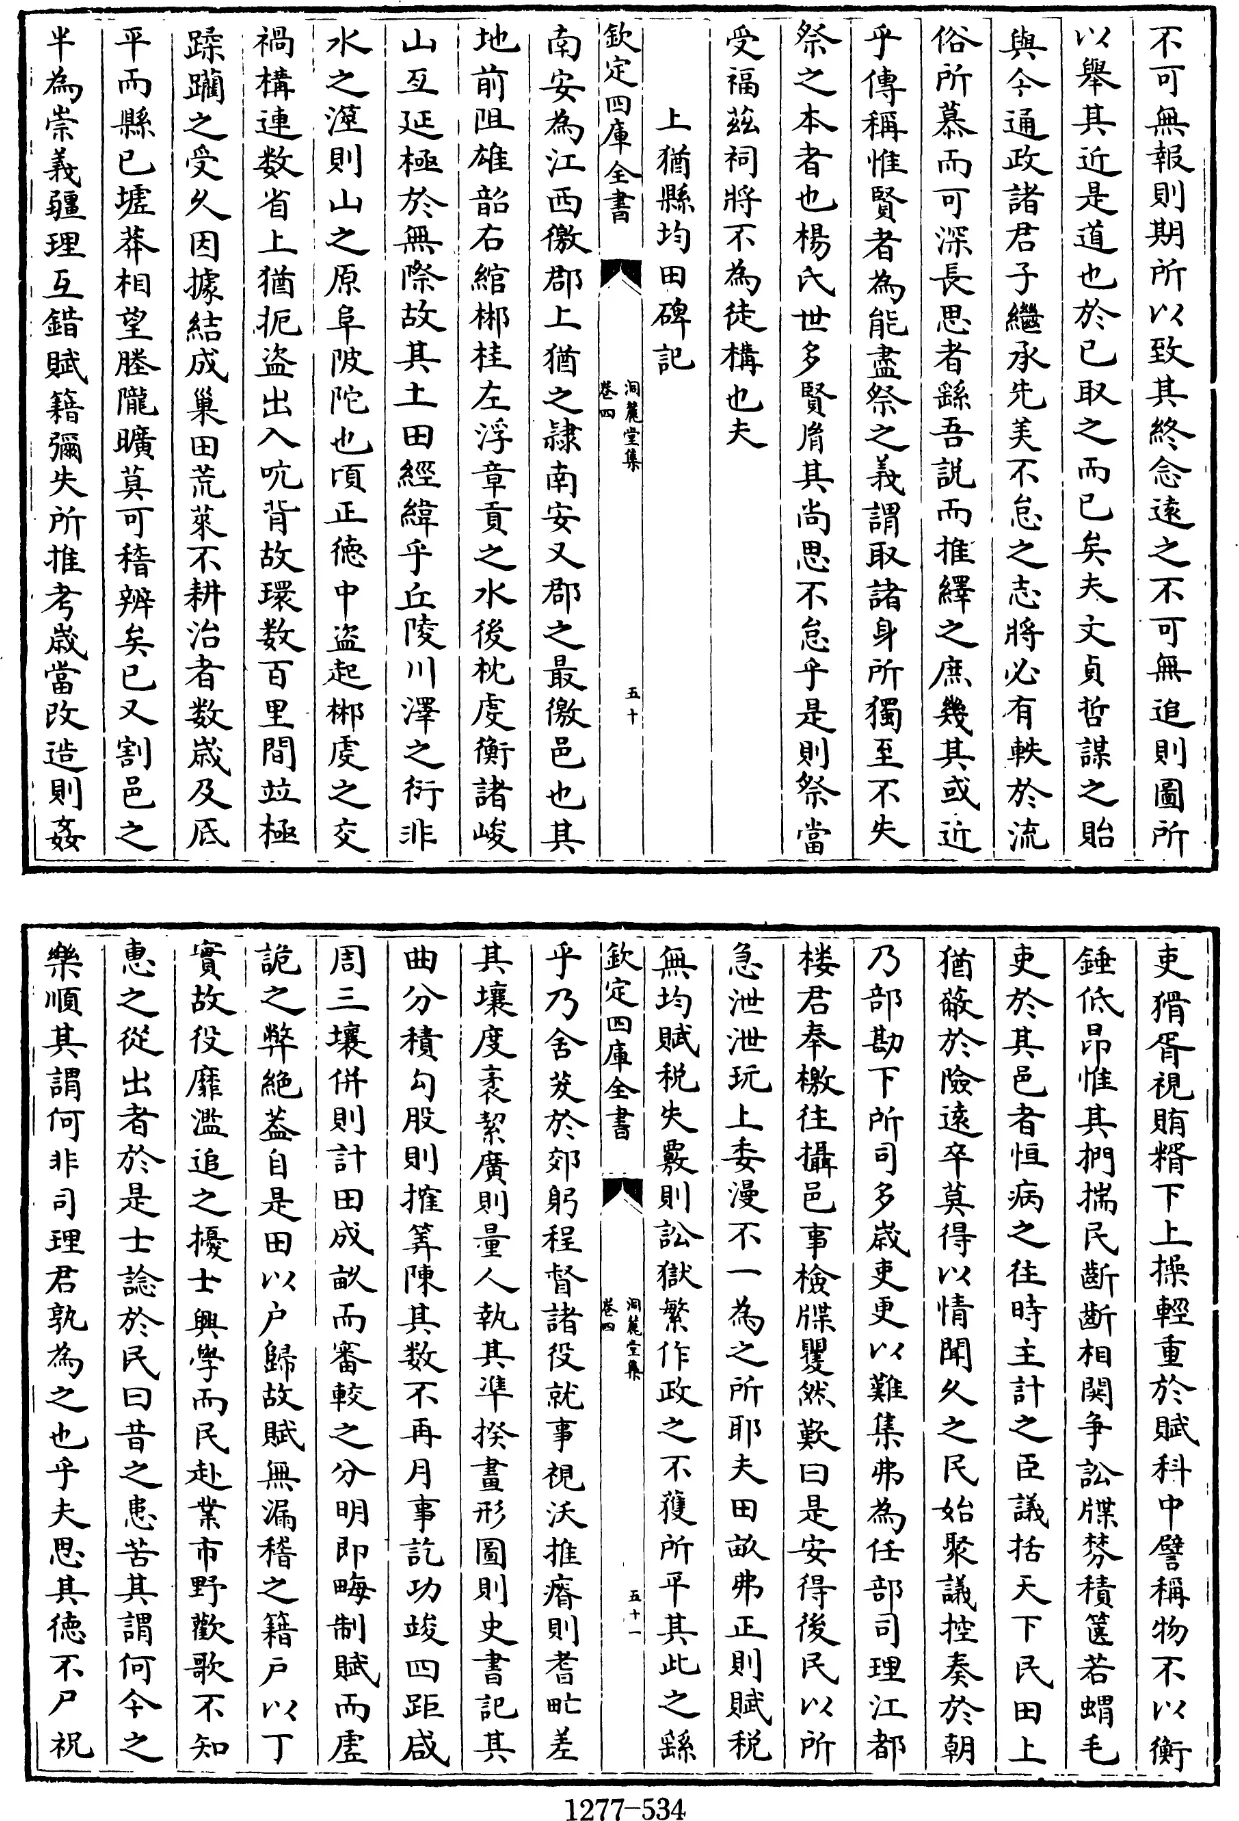 不可無報則期所以致其終念遠之不可無追則圖所
以舉其近是道也於已取之而已矣夫文貞哲謀之貽
與今通政諸君子繼承先美不怠之志將必有軼於流
俗所慕而可深長思者繇吾說而推繹之庶幾其或近
乎傳稱惟賢者為能盡祭之義謂取諸身所獨至不失
祭之本者也楊氏世多賢胤其尚思不怠乎是則祭當
受福茲祠將不為徒構也夫
上猶縣均田碑記
欽定四庫全書
洞麓堂集
卷四
五十
南安為江西徼郡上猶之隷南安又郡之最徼邑也其
地前阻雄韶右綰郴桂左浮章貢之水後枕虔衡諸峻
山亙延極於無際故其土田經緯乎丘陵川澤之衍非
水之溼則山之原阜陂陀也頃正德中盜起郴虔之交
禍構連数省上猶扼盜出入吭背故環数百里間竝極
蹂躪之受久因據結成巢田荒萊不耕治者数歲及底
平而縣已墟莽相望塍隴曠莫可稽辨矣已又割邑之
半為崇義疆理互錯賦籍彌失所推考歲當改造則姦
吏猾胥視賄糈下上操輕重於賦科中譬稱物不以衡
錘低昂惟其捫揣民齗齗相䦧争訟牒棼積篋若蝟毛
吏於其邑者恒病之往時主計之臣議括天下民田上
猶蔽於險遠卒莫得以情聞久之民始聚議控奏於朝
乃部勘下所司多歲吏更以難集弗為任部司理江都
楼君奉檄往攝邑事檢牒矍然歎曰是安得後民以所
急泄泄玩上委漫不一為之所耶夫田畝弗正則賦税
無均賦税失覈則訟獄繁作政之不獲所平其此之繇
欽定四庫全書
洞麓堂集
卷四
五十一
乎乃舍茇於郊躬程督諸役就事視沃推瘠則耆甿差
其壤度袤絜廣則量人執其凖揆畫形圖則史書記其
曲分積勾股則搉筭陳其数不再月事訖功竣四距咸
周三壤併則計田成畝而審較之分明即畮制賦而虛
詭之弊絶葢自是田以户歸故賦無漏稽之籍户以丁
實故役靡濫追之擾士興學而民赴業市野歡歌不知
惠之從出者於是士諗於民曰昔之患苦其謂何今之
樂順其謂何非司理君孰為之也乎夫思其徳不尸祝
1277-534